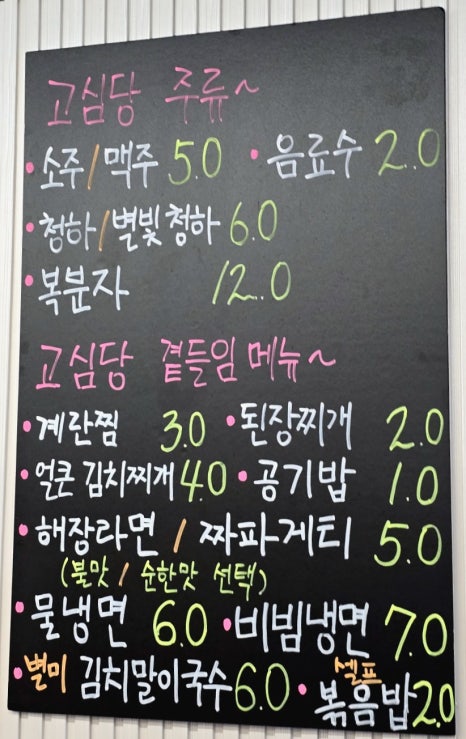 고심당 주류~
• 소주/맥주 5.0 • 음료수 2.0
• 청하/별빛청하 6.0
• 복분자 12.0
고심당 곁들임 메뉴~
• 계란찜 3.0 • 된장찌개 2.0
• 얼큰 김치찌개 4.0 • 공기밥 1.0
• 해장라면 / 짜파게티 5.0
(불맛 / 순한맛 선택)
• 물냉면 6.0 • 비빔냉면 7.0
• 별미 김치말이국수 6.0 • 셀프 볶음밥 2.0